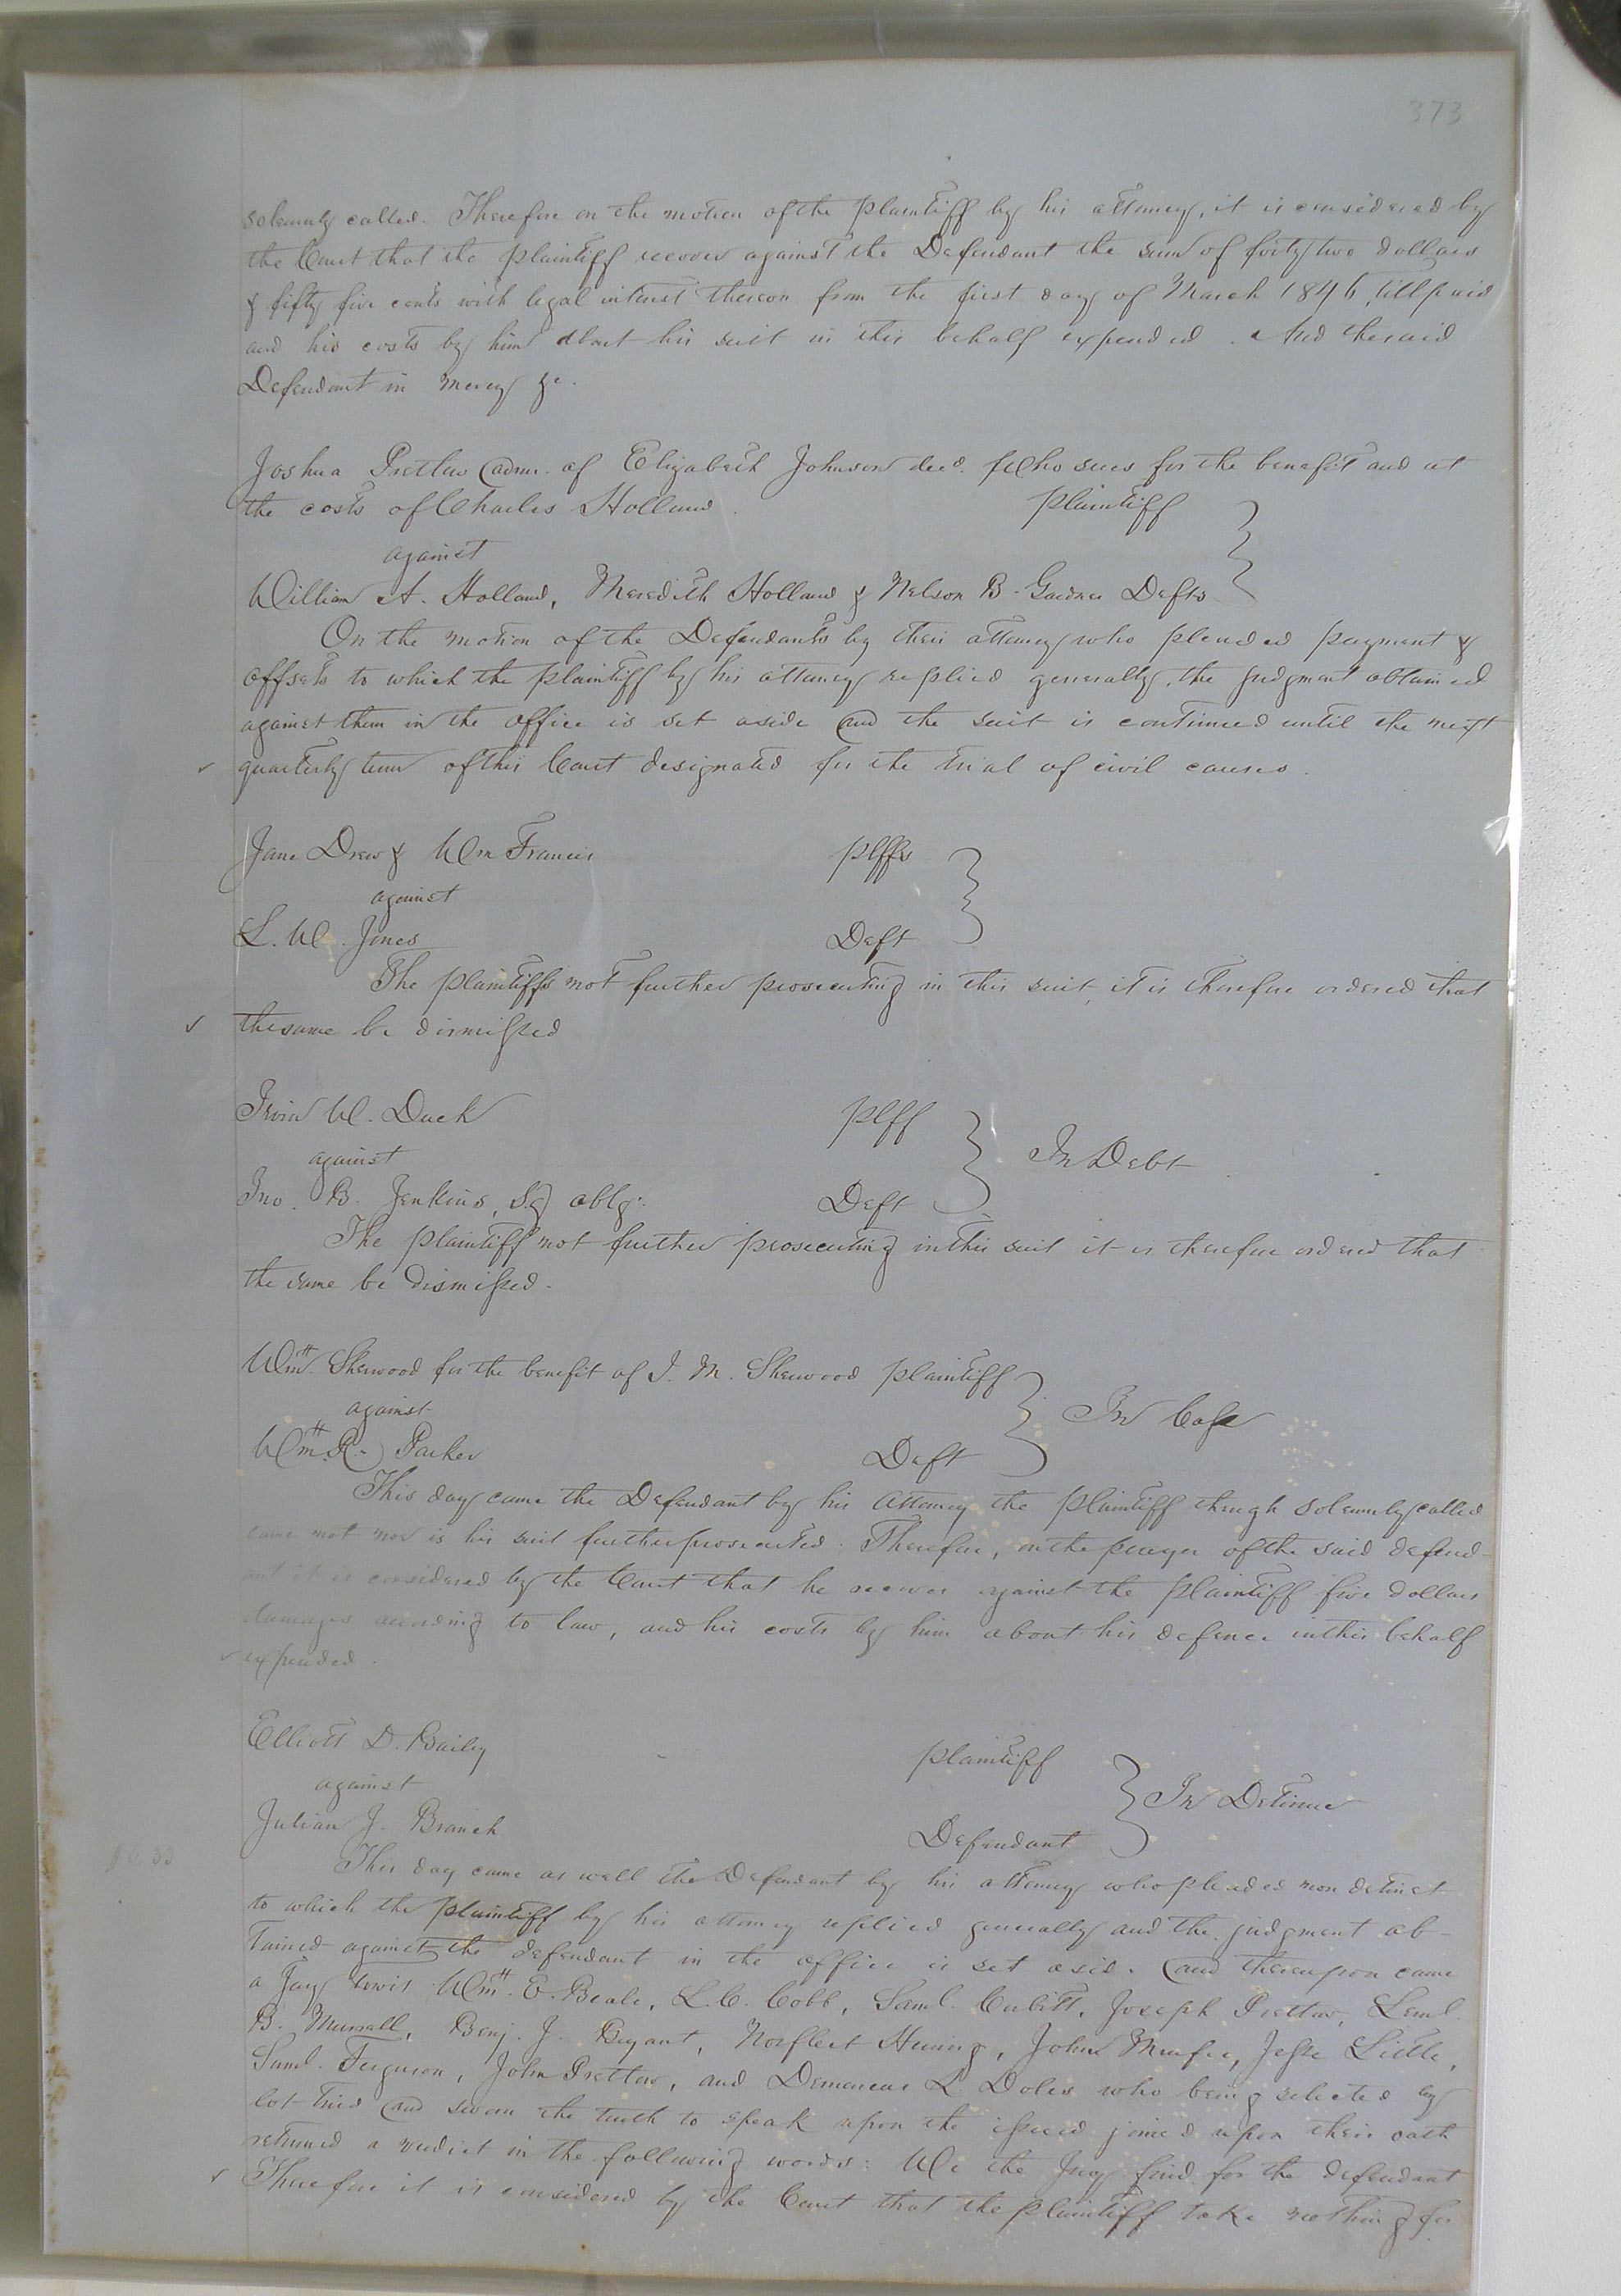 373
solemnly called. Therefore on the motion of the plaintiff by his attorney, it is considered by
the Court that the plaintiff recover against the Defendant the sum of forty two dollars
& fifty five cents with legal interest thereon from the first day of March 1846, till paid
and his costs by him about his suit in this behalf expended. And the said
Defendant in mercy &c.
Joshua Pretlow admr. of Elizabeth Johnson decd. who sues for the benefit and at
the costs of Charles Holland. plaintiff
against
William A. Holland, Meredith Holland & Nelson B. Gardner Defts
On the motion of the Defendants by their attorney who pleaded payment &
offsets to which the plaintiff by his attorney replied generally, the judgment obtained
against them in the office is set aside and the suit is continued until the next
quarterly term of this Court designated for the trial of civil causes.
Jane Drew & Wm Francis plffs
against
L. W. Jones Deft
The plaintiffs not further prosecuting in this suit, it is therefore ordered that
the same be dismissed
Irvin W. Duck plff
against In Debt
Jno. B. Jenkins, Sg oblg: Deft
The plaintiff not further prosecuting in this suit it is therefore ordered that
the same be dismissed.
Wm. Sherwood for the benefit of J. M. Sherwood plaintiff
against In Case
Wm. R. Parker Deft
This day came the Defendant by his attorney the plaintiff though solemnly called
came not nor is his suit further prosecuted: Therefore, on the prayer of the said defend-
ant it is considered by the Court that he recover against the plaintiff five dollars
damages according to law, and his costs by him about his defence in this behalf
expended.
Elliott D. Bailey plaintiff
against In Detinue
Julian J. Branch Defendant
This day came as well the Defendant by his attorney who pleaded non detinet
to which the plaintiff by his attorney replied generally and the judgment ob-
tained against the defendant in the office is set aside. and thereupon came
a Jury towit Wm. E. Beale, L. C. Cobb, Saml. Corbitt, Joseph Pretlow, Leml.
B. Murrall, Benj. J. Bryant, Norfleet Hering, John Murfee, Jesse Little,
Saml. Ferguson, John Pretlow, and Demarcus L. Doles who being selected by
lot tried and sworn the truth to speak upon the issue joined upon their oath
returned a verdict in the following words: We the Jury find for the defendant
Therefore it is considered by the Court that the plaintiff take nothing for